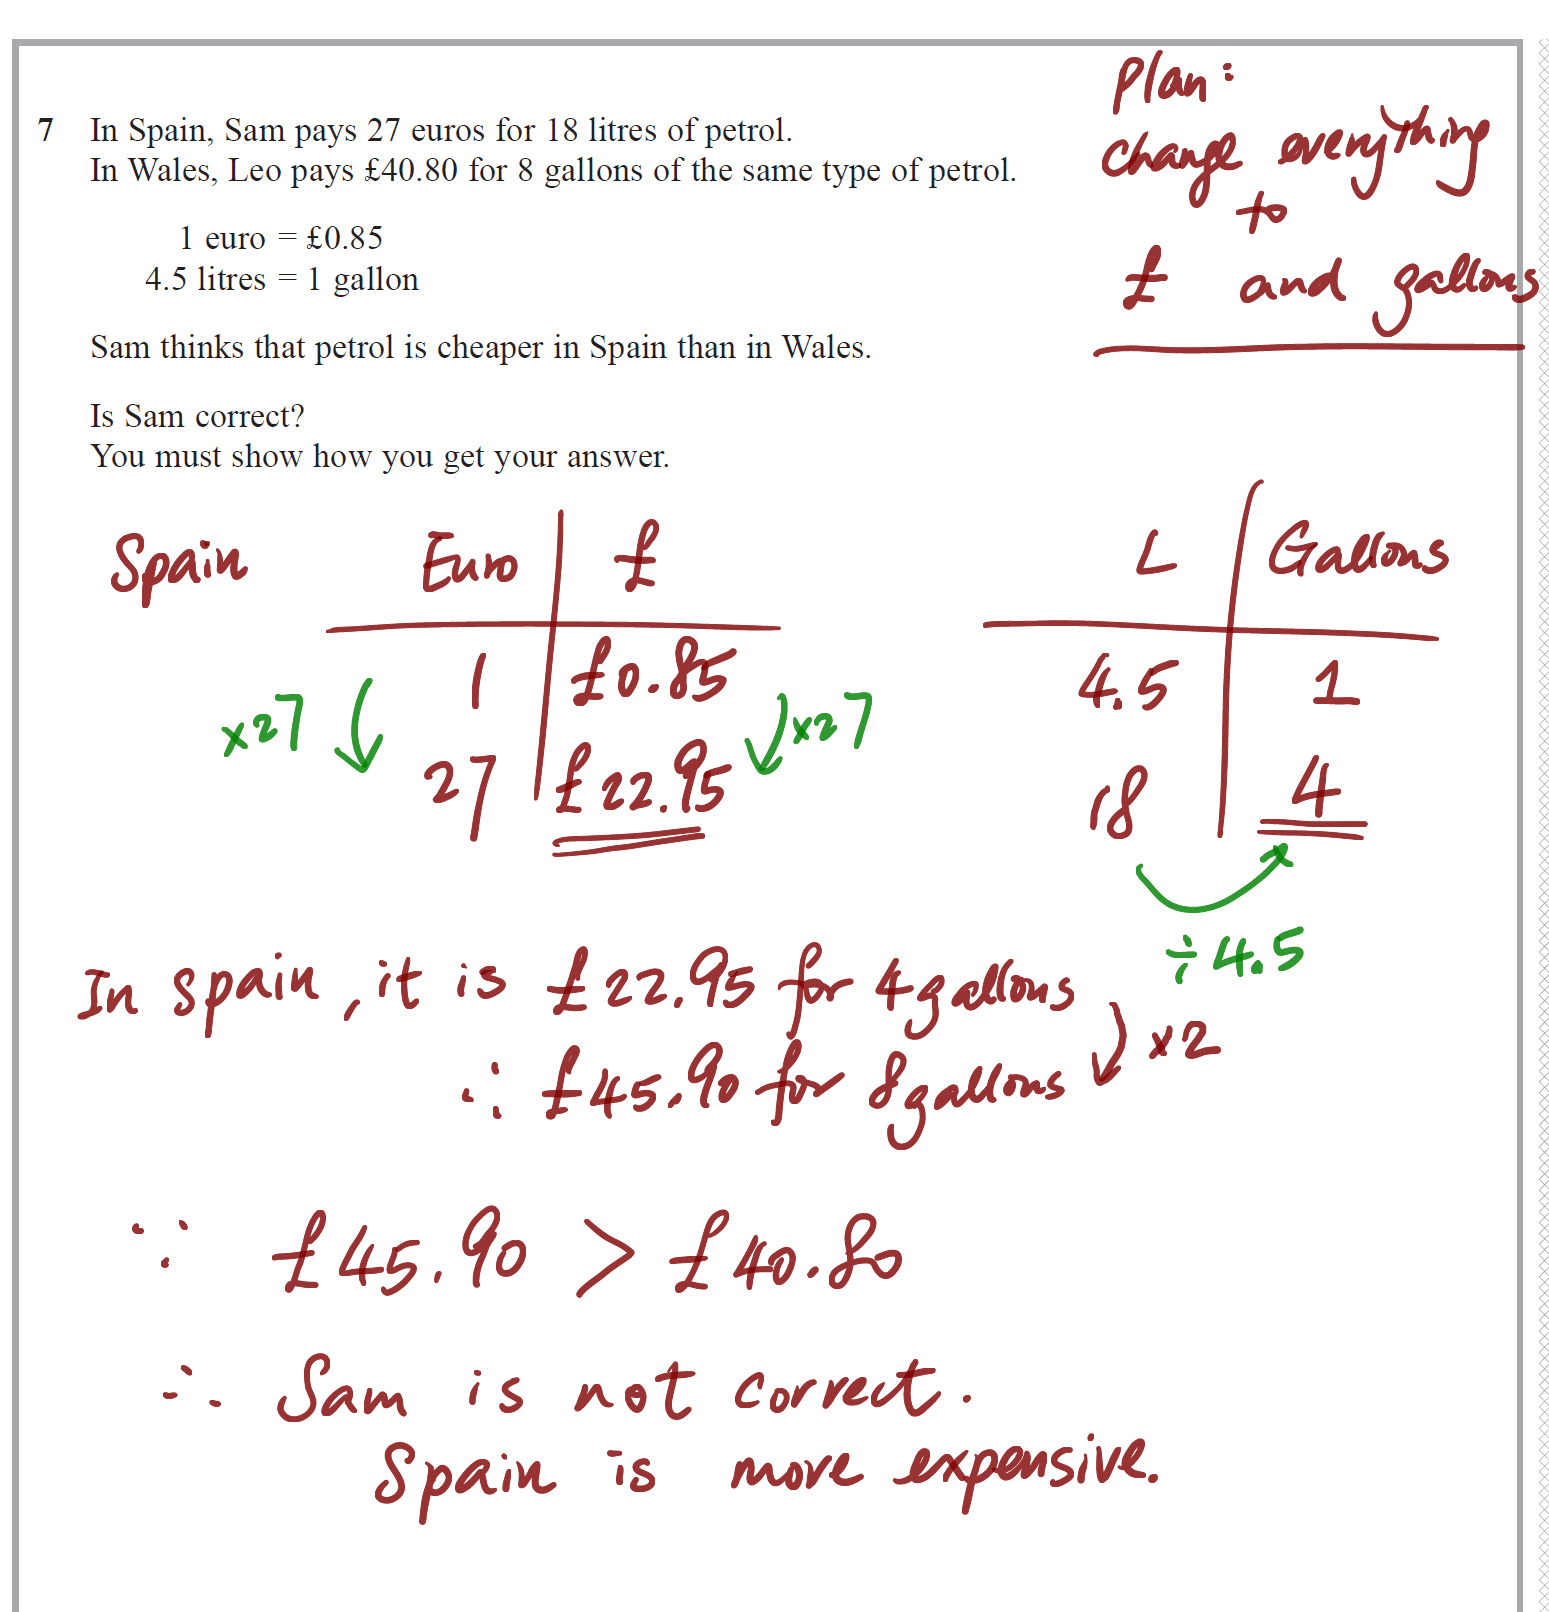 Plan:
change everything
to
£ and gallons
7 In Spain, Sam pays 27 euros for 18 litres of petrol.
In Wales, Leo pays £40.80 for 8 gallons of the same type of petrol.
1 euro = £0.85
4.5 litres = 1 gallon
Sam thinks that petrol is cheaper in Spain than in Wales.
Is Sam correct?
You must show how you get your answer.
Spain Euro £
1 £0.85
×27 ×27
27 £22.95
L Gallons
4.5 1
18 4
÷4.5
In Spain, it is £22.95 for 4 gallons
×2
∴ £45.90 for 8 gallons
∵ £45.90 > £40.80
∴ Sam is not correct.
Spain is more expensive.